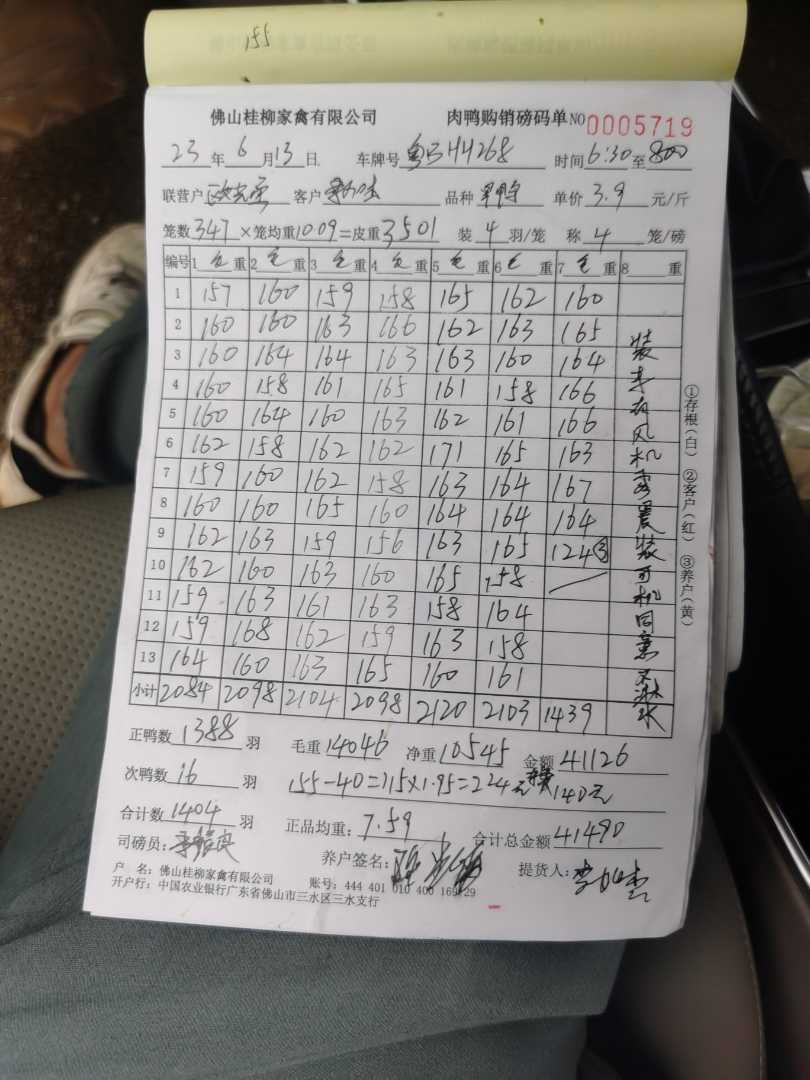 155
佛山桂柳家禽有限公司 肉鸭购销磅码单 NO 0005719
23 年 6 月 13 日 车牌号 粤 H4268 时间 6:30 至 800
联营户 客户 品种 鸭 单价 3.9 元/斤
笼数 347 ×笼均重 10.09 =皮重 3501 装 4 羽/笼 称 4 笼/磅
编号 1 毛 重 2 毛 重 3 毛 重 4 毛 重 5 毛 重 6 毛 重 7 毛 重 8 重
1 157 160 159 158 165 162 160
2 160 160 163 166 162 163 165
3 160 164 164 163 163 160 164
4 160 158 161 165 161 158 166
5 160 164 160 163 162 161 166
6 162 158 162 162 171 165 163
7 159 160 162 158 163 164 167
8 160 160 165 160 164 164 164
9 162 163 159 156 163 165 124 ③
10 162 160 163 160 165 158
11 159 163 161 163 158 164
12 159 168 162 159 163 158
13 164 160 163 165 160 161
小计 2084 2098 2104 2098 2120 2103 1439
装车有风机 装 司机同意不淋水
①存根(白) ②客户(红) ③养户(黄)
正鸭数 1388 羽 毛重 14046 净重 10545 金额 41126
次鸭数 16 羽 155-40=115×1.95=224元 140元
合计数 1404 羽 正品均重: 7.59 合计总金额 41490
司磅员: 养户签名: 提货人:
户 名: 佛山桂柳家禽有限公司 账号: 444 401 010 400 169 29
开户行: 中国农业银行广东省佛山市三水区三水支行